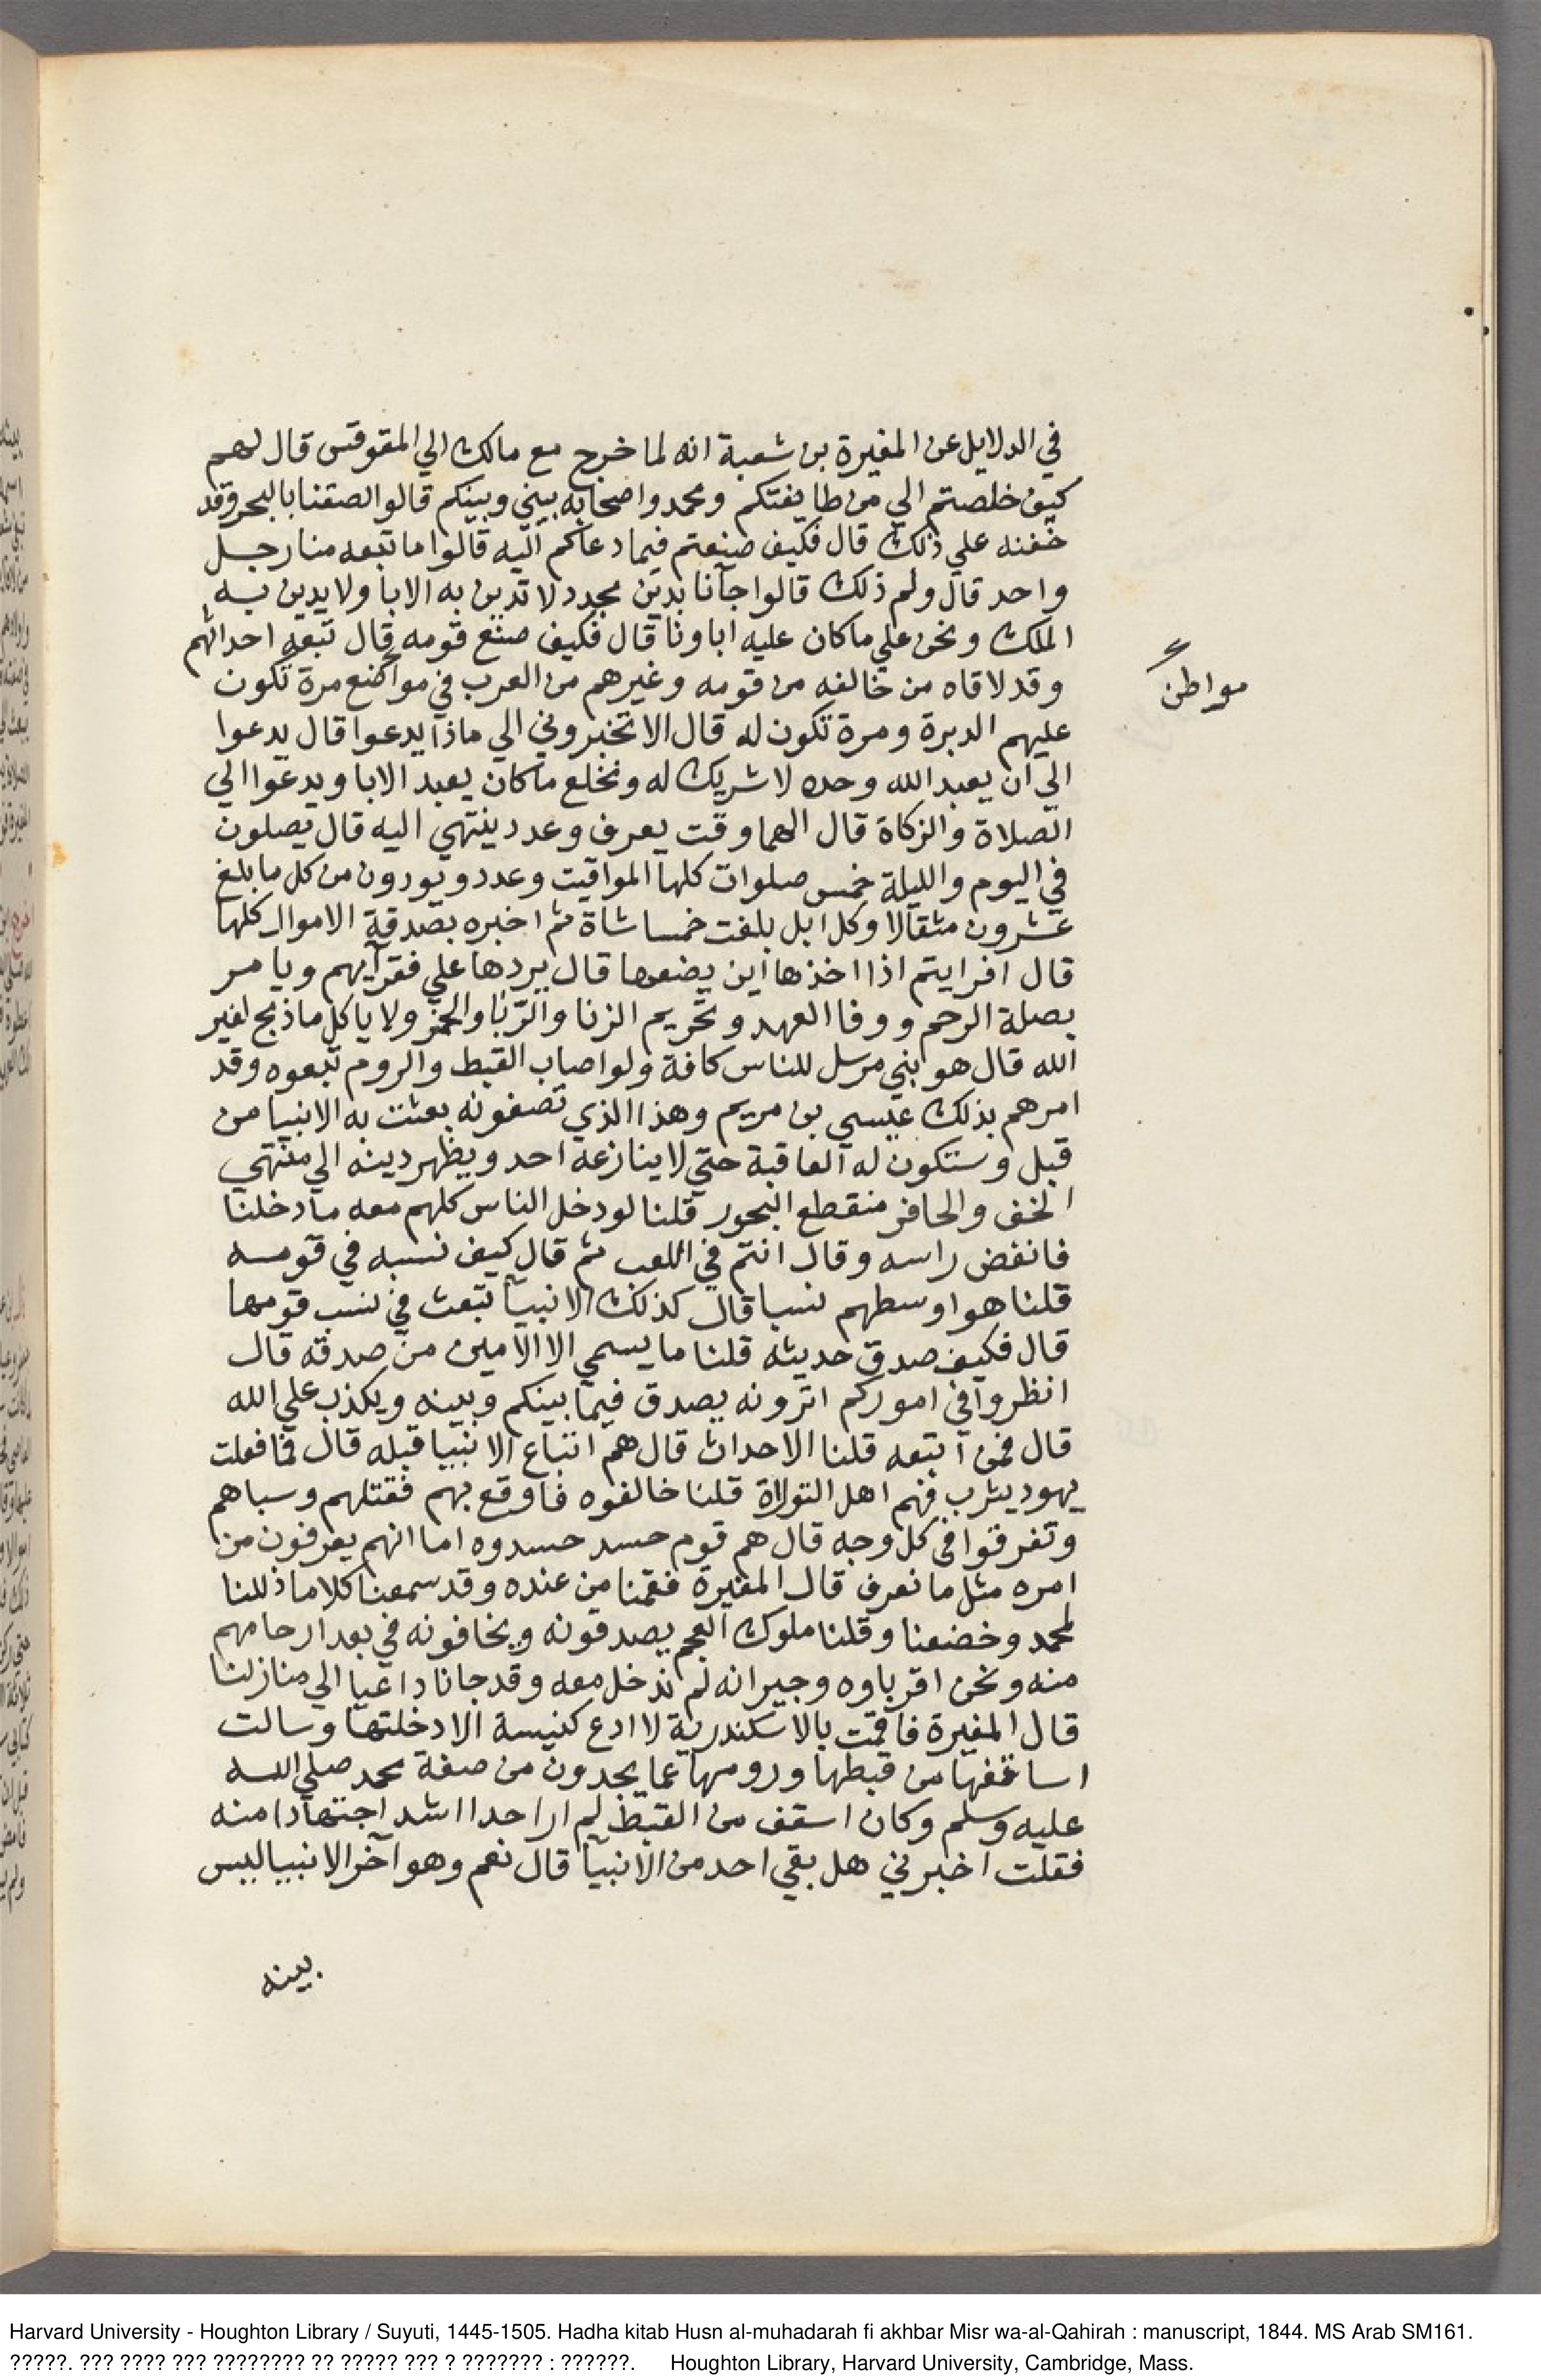 في الدلايل عن المغيرة بن شعبة انه لما خرج مع مالك الي المقوقس قال لهم
كيف خلصتم الي من طايفتكم ومحمد واصحابه بيني وبينكم قالوا الصقنا بالبحر وقد
خفنه علي ذلك قال فكيف صنعتم فيما دعاكم اليه قالوا ما تبعه منا رجل
واحد قال ولم ذلك قالوا جآنا بدين مجدد لا تدين به الابا ولا يدين به
الملك ونحن علي ما كان عليه اباونا قال فكيف صنع قومه قال تبعه احداثهم
وقد لاقاه من خالفه من قومه وغيرهم من العرب في مواضع مرة تكون
مواطن
عليهم الدبرة ومرة تكون له قال الا تخبروني الي ماذا يدعوا قال يدعوا
الي ان يعبد الله وحده لا شريك له ونخلع ما كان يعبد الابا ويدعوا الي
الصلاة والزكاة قال الهما وقت يعرف وعدد ينتهي اليه قال يصلون
في اليوم والليلة خمس صلوات كلها لمواقيت وعدد ويودون من كل ما بلغ
عشرون مثقالا وكل ابل بلغت خمسا شاة ثم اخبره بصدقة الاموال كلها
قال افرايتم اذا اخذها اين يضعها قال يردها علي فقرآيهم ويامر
بصلة الرحم ووفا العهد وتحريم الزنا والربا والخمر ولا ياكل ما ذبح لغير
الله قال هو نبي مرسل للناس كافة ولو اصاب القبط والروم تبعوه وقد
امرهم بذلك عيسى بن مريم وهذا الذي تصفونه بعثت به الانبيا من
قبل وستكون له العاقبة حتي لا ينازعه احد ويظهر دينه الي منتهي
الخف والحافر منقطع البحور قلنا لو دخل الناس كلهم معه ما دخلنا
فانغض راسه وقال انتم في اللعب ثم قال كيف نسبه في قومه
قلنا هو اوسطهم نسبا قال كذلك الانبيآ تبعث في نسب قومها
قال فكيف صدق حديثه قلنا ما يسمي الا الامين من صدقه قال
انظروا في اموركم اترونه يصدق فيما بينكم وبينه ويكذب علي الله
قال فمن اتبعه قلنا الاحداث قال هم اتباع الانبيا قبله قال فما فعلت
يهود يثرب فهم اهل التوراة قلنا خالفوه فاوقع بهم فقتلهم وسباهم
وتفرقوا في كل وجه قال هم قوم حسد حسدوه اما انهم يعرفون من
امره مثل ما نعرف قال المغيرة فقمنا من عنده وقد سمعنا كلاما ذللنا
لمحمد وخضعنا وقلنا ملوك العجم يصدقونه ويخافونه في بعد ارحامهم
منه ونحن اقرباوه وجيرانه لم ندخل معه وقد جانا داعيا الي منازلنا
قال المغيرة فاقمت بالاسكندرية لا ادع كنيسة الا دخلتها وسالت
اساقفها من قبطها ورومها عما يجدون من صفة محمد صلي الله
عليه وسلم وكان اسقف من القبط لم ار احدا اشد اجتهادا منه
فقلت اخبرني هل بقي احد من الانبيآ قال نعم وهو آخر الانبيا ليس
بينه
Harvard University - Houghton Library / Suyuti, 1445-1505. Hadha kitab Husn al-muhadarah fi akhbar Misr wa-al-Qahirah : manuscript, 1844. MS Arab SM161.
?????. ??? ???? ??? ???????? ?? ????? ??? ? ??????? : ??????. Houghton Library, Harvard University, Cambridge, Mass.